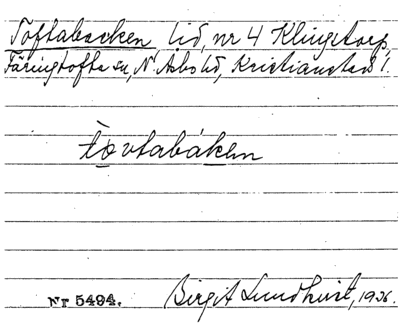 Toftabacken, lid, nr 4 Klingstorp,
Färingtofta sn, N. Åsbo hd, Kristianstad l.
tovtabákən
Nr 5494. Birgit Lundhvist, 1926.